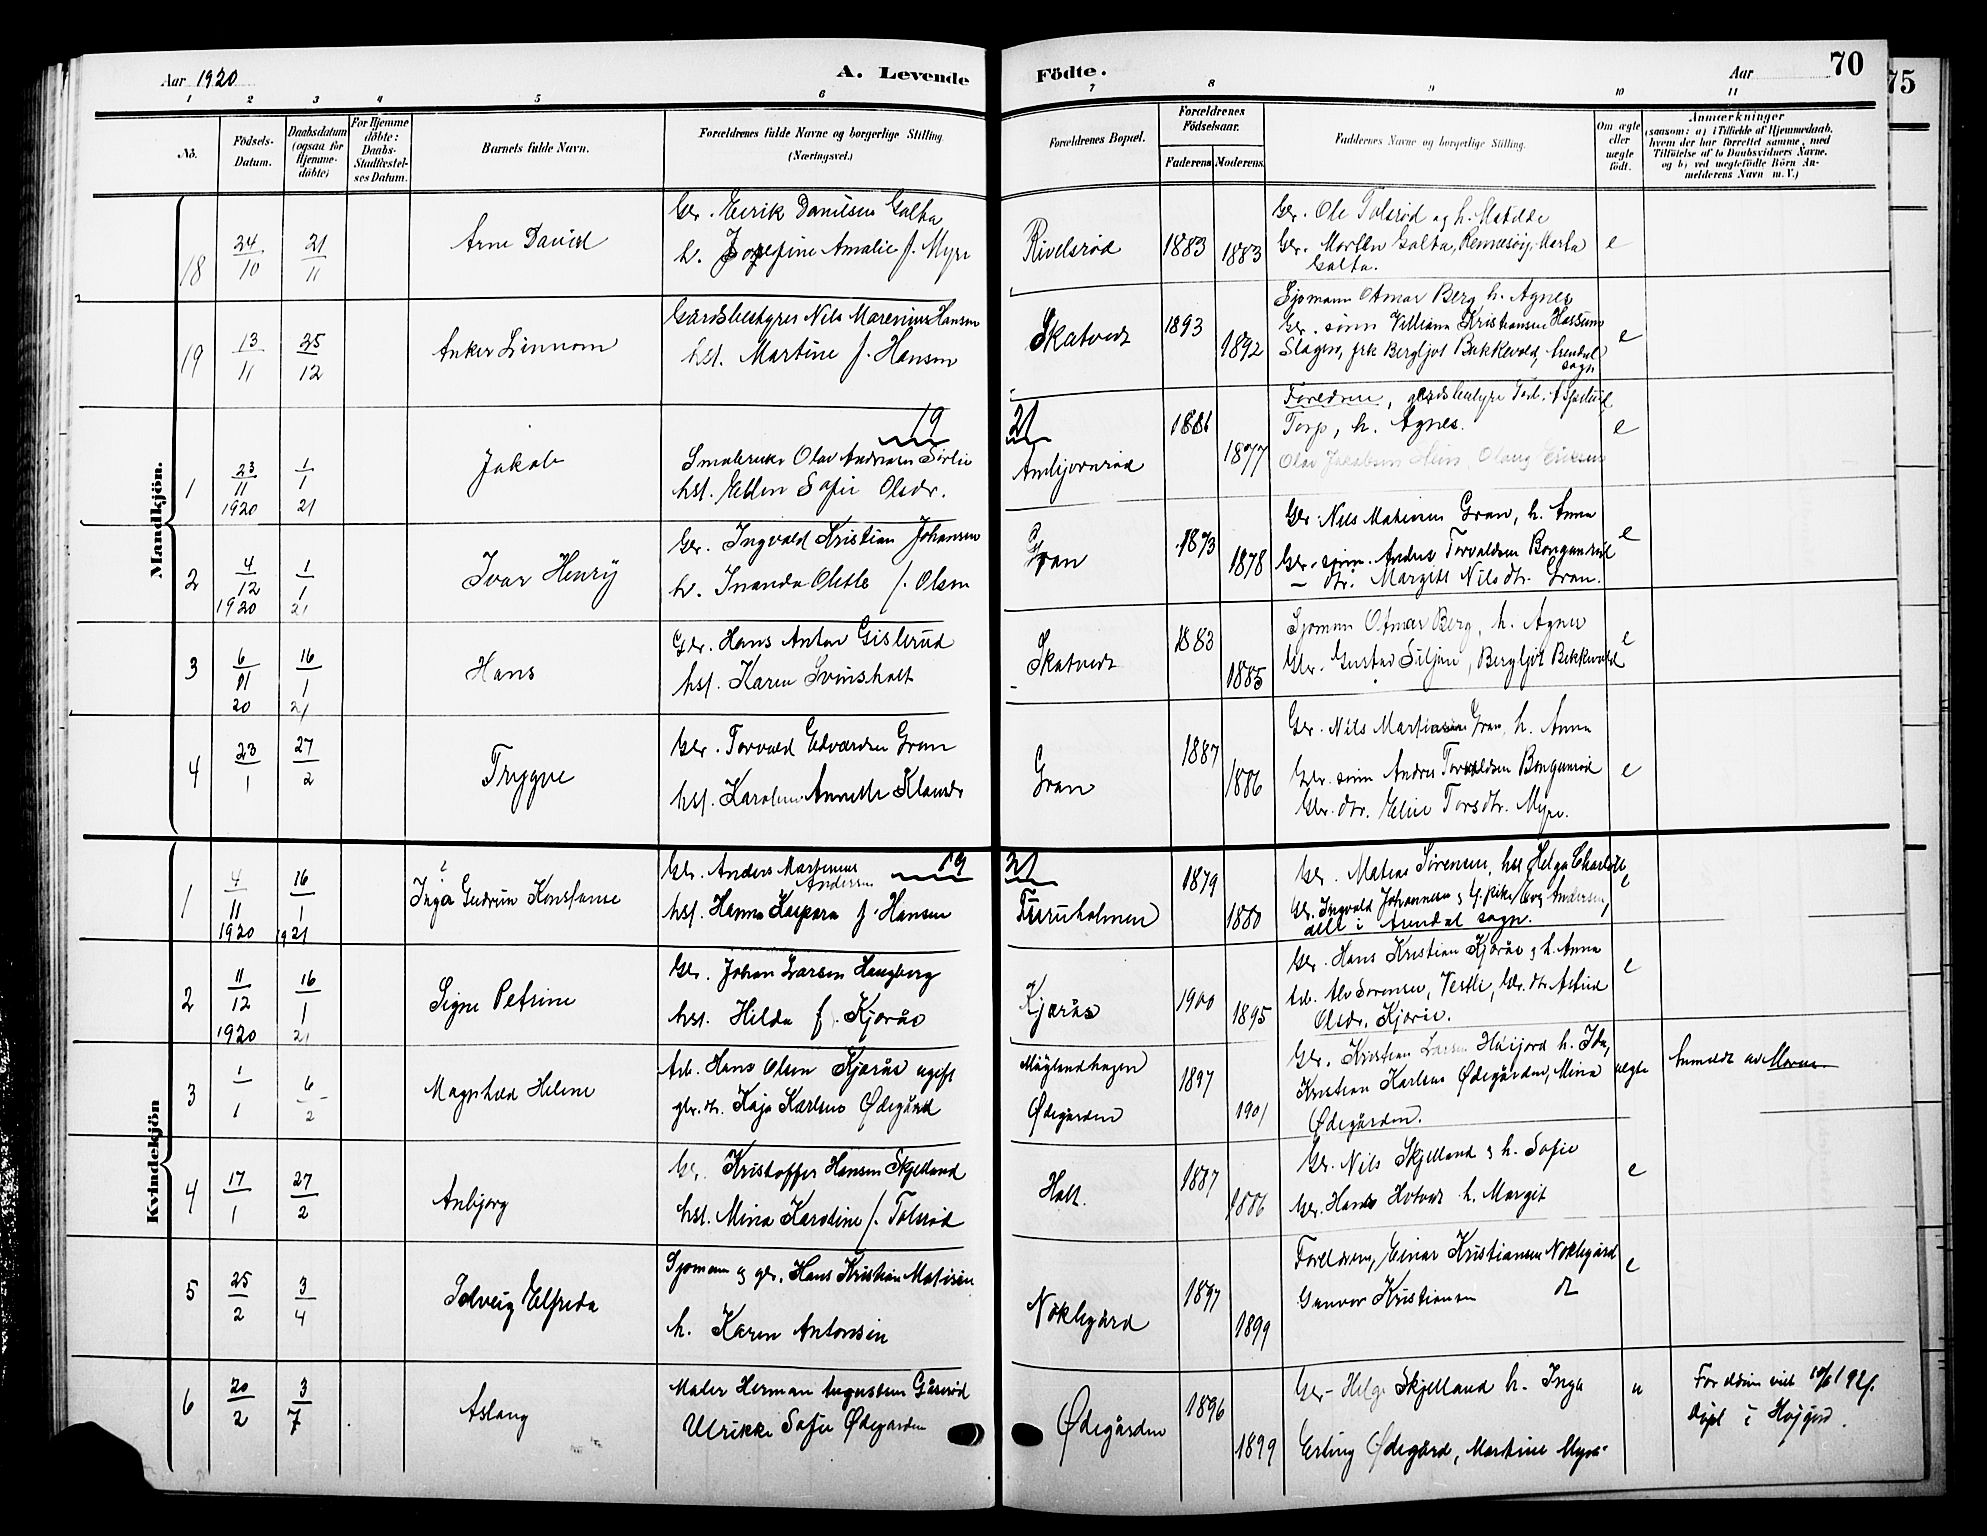 Aar 1920
A. Levende
Födte.
Aar
70
75
1 2 3 4 5 6 7 8 9 10 11
No.
Födsels-
Datum.
Daabsdatum
(ogsaa for
Hjemme-
döbte)
For Hjemme
döbte:
Daabs-
Stadfæstel-
ses Datum.
Barnets fulde Navn.
Forældrenes fulde Navne og borgerlige Stilling.
(Næringsvei.)
Forældrenes Bopæl.
Forældrenes
Födselsaar.
Faderens Moderens
Faddernes Navne og borgerlige Stilling.
Om ægte
eller
uægte
födt.
Anmærkninger
(saasom: a) i Tilfælde af Hjemmedaab,
hvem der har forrettet samme, med
Tilföielse af to Daabsvidners Navne,
og b) ved uægtefödte Börn An-
melderens Navn m. V.)
Mandkjön.
18 24/10 21/11 Arne David
Gbr. Eirik Danilsen Galta
h. Josefine Amalie f. Myre
Rivelsrød 1883 1883
Gbr. Ole Tolsrød og h. Matilde
Gbr. Morten Galta, Rennesøy, Marta
Galta.
e
19 13/11 25/12 Anker Linnom
Gårdsbestyrer Nils Marenius Hansen
hst. Martine f. Hansen
Skatvedt 1893 1892
Sjømann Otmar Berg, h. Agnes
Gbr. sønn Villiam Kristiansen
Slagen, frk Bergljot Bekkevold, Arendal
sogn
e
19 21
1 23/11 1920 1/1 21 Jakob
Småbruker Olav Andersen Sörlie
hst. Ellen Sofie Olsdr.
Anbjørnrød 1886 1877
Foreldrene, gårdsbestyrer
Torp, h. Agnes.
Olav Jakobsen
e
2 4/12 1920 1/1 21 Ivar Henry
Gbr. Ingvald Kristian Johansen
h. Inanda Olette f. Olsen
Gran 1873 1878
Gbr. Nils Matisen Gran, h. Anna
Gbr. sønn Andres Torvaldsen Bonganrød
– dtr. Margit Nilsdtr. Gran.
e
3 6/11 20 16/1 21 Hans
Gbr. Hans Anton Gislerud
hst. Karen Svinsholt
Skatvedt 1883 1885
Sjømann Otmar Berg, h. Agnes
Gbr. Gustav Siljan, Bergljot Bekkevold
e
4 23/1 27/2 Trygve
Gbr. Torvald Edvardsen Gran
hst. Karoline Annette Klausdr
Gran 1887 1886
Gbr. Nils Martinsen Gran, h. Anna
Gbr. sønn Andres Torvaldsen Bonganrød
Gbr. dtr. Elise Torsdtr. Myre.
e
Kvindekjön
19 21
1 4/11 1920 16/1 1921 Inga Gudrun Konstanse
Gbr. Anders Martinius
Andersen
hst. Hanna Kaspara f. Hansen
Furuholmen 1879 1880
Gbr. Matias Sørensen, hst Helga Charlotte
Gbr. Ingvald Johannesen & G. pike Eva Andersen,
alle i Arendal sogn.
e
2 11/12 1920 16/1 21 Signe Petrine
Gbr. Johan Larsen Haugberg
hst. Hilda f. Kjærås
Kjærås 1900 1895
Gbr. Hans Kristian Kjærås & h. Anna
Arb. Alv Sørensen, Vestli, Gbr. dtr Astrid
Olsdr. Kjærås.
e
3 1/1 6/2 Magnhild Helene
Arb. Hans Olsen Kjærås ugift
gbr. dtr. Kaja Karlsen Ødegård
Møglandhagen
Ødegården
1897 1901
Gbr. Kristian Larsen Høijord h. Ida,
Kristian Karlsen Ødegården, Mina
Ødegården.
uegte
Anmeldt av Moren
4 17/1 27/2 Anbjørg
Gbr. Kristoffer Hansen Skjelland
hst. Mina Karoline f. Tolsrød
Holt. 1887 1886
Gbr. Nils Skjelland & h. Sofie
Gbr. Hans Hotvedt h. Margit
e
5 25/2 3/4 Solveig Elfrida
Sjømann og gbr. Hans Kristian Matisen
h. Karen Antonsen
Nøklegård 1897 1899
Foreldrene, Einar Kristiansen Nøklegård
Gunvor Kristiansen
e
6 20/2 3/7 Aslaug
Maler Herman Augustsen Gåserød
Ulrikke Sofie Ødegården
Ødegården 1896 1899
Gbr. Helge Skjelland h. Inga
Erling Ødegård, Martine Myre
u
Foreldrene viet
Døpt i Høijord.